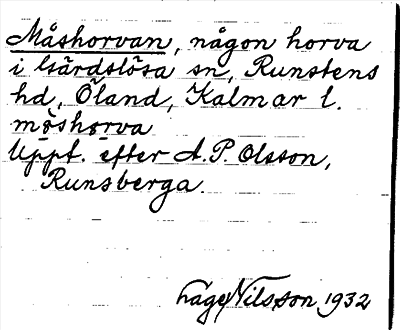 Måshorvan, någon horva
i Gärdslösa sn, Runstens
hd, Öland, Kalmar l.
måshorva
Uppt. efter A. P. Olsson,
Runsberga.
Håge Nilsson 1932